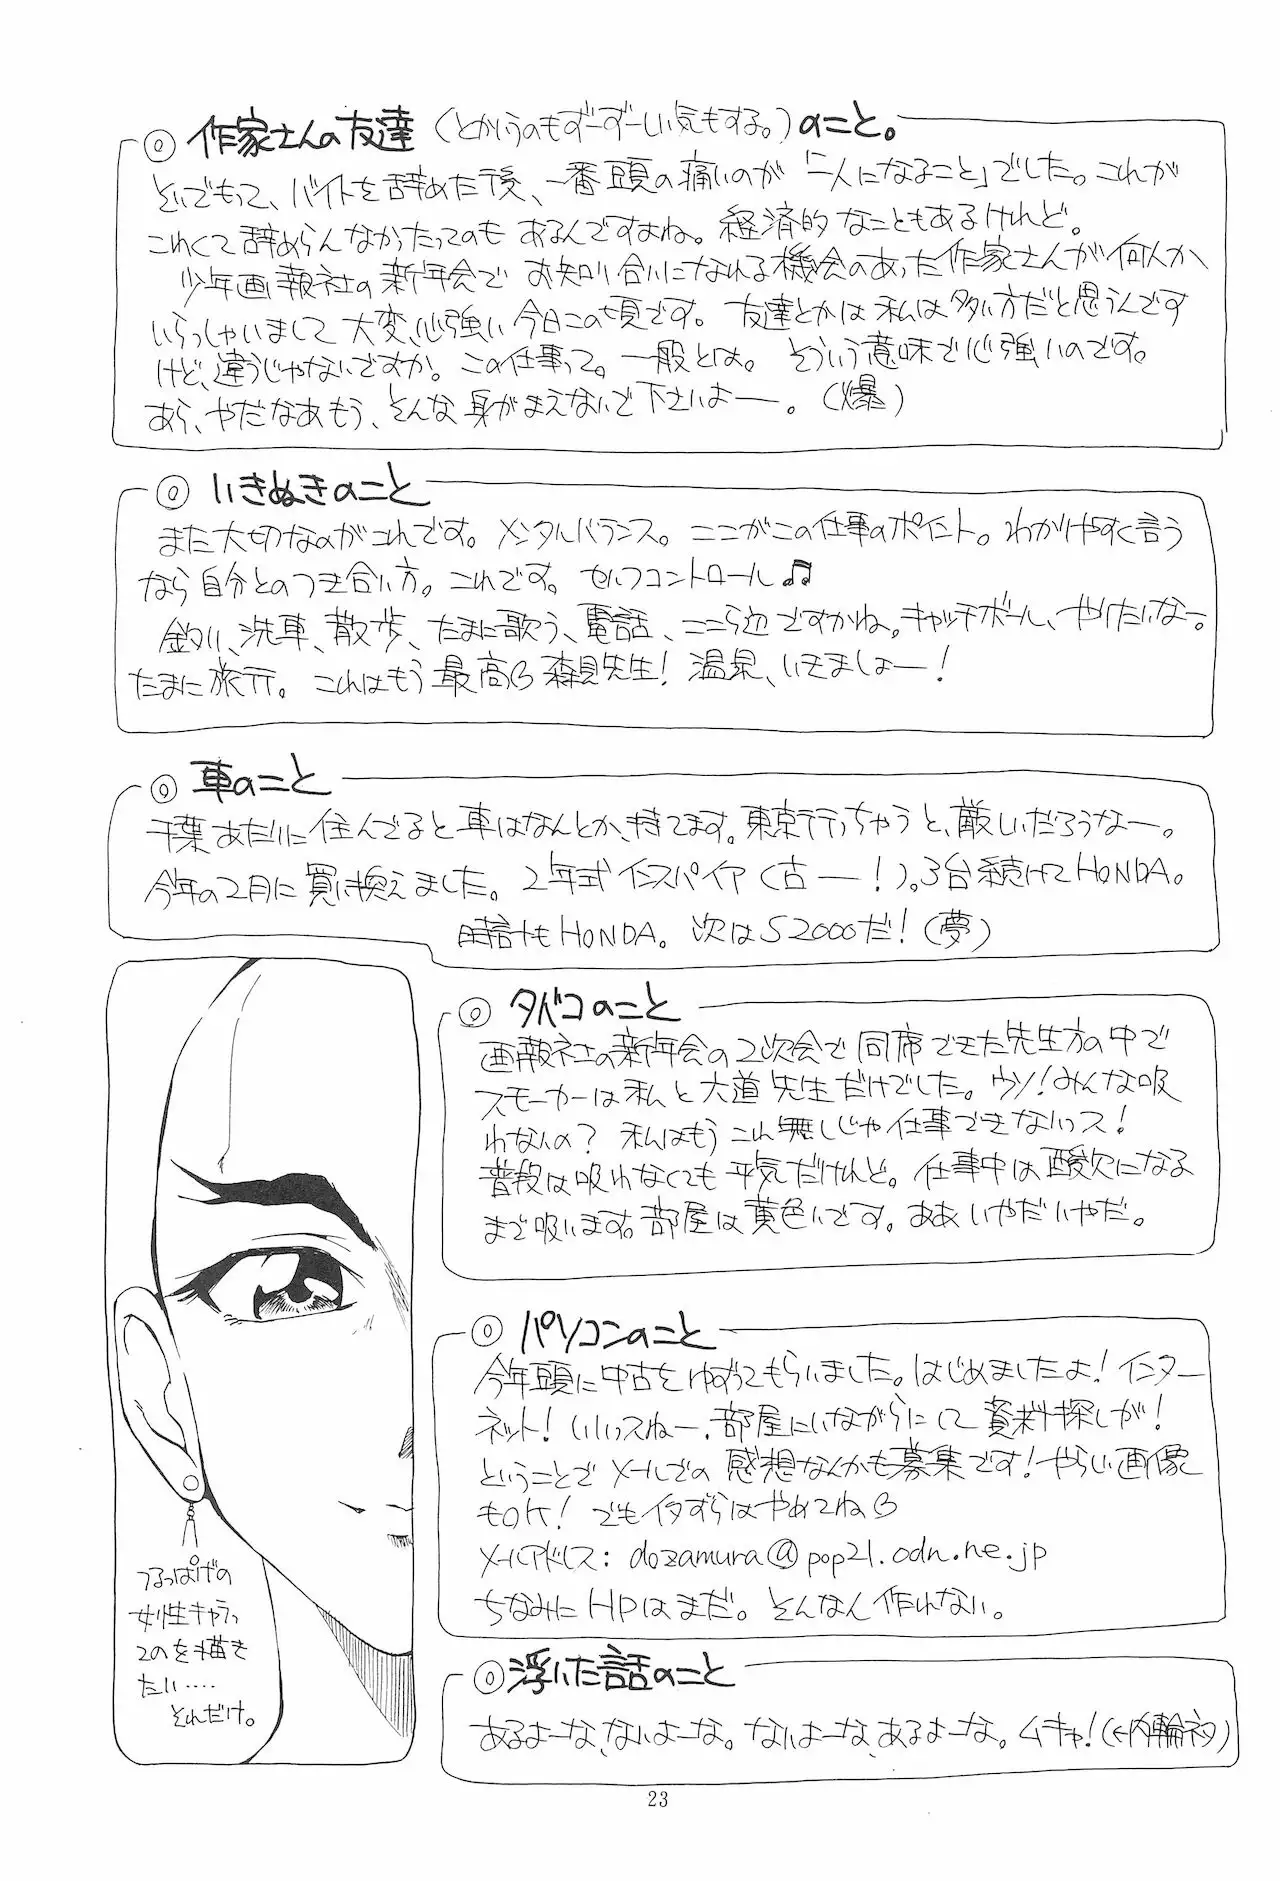 ◎作家さんの友達(とかいうのもずーずーしい気もする。)のこと。
そいでもって、バイトを辞めた後、一番頭の痛いのが「一人になること」でした。これが
こわくて辞めらんなかったってのもあるんですよね。経済的なこともあるけれど。
少年画報社の新年会でお知り合いになれる機会のあった作家さんが何人か
いらっしゃいまして大変、心強い今日この頃です。友達とかは私は多い方だと思うんです
けど、違うじゃないですか。この仕事って。一般とは。そういう意味で心強いのです。
あら、やだなあもう、そんな身がまえないで下さいよー。(爆)
◎いきぬきのこと
また大切なのがこれです。メンタルバランス。ここがこの仕事のポイント。わかりやすく言う
なら自分とのつき合い方。これです。セルフコントロール♫
釣り、洗車、散歩、たまに歌う、電話、ここら辺ですかね。キャッチボール、やりたいなー。
たまに旅行。これはもう最高♡森見先生!温泉、いきましょー!
◎車のこと
千葉あたりに住んでると車はなんとか、持てます。東京行っちゃうと、厳しいだろうなー。
今年の2月に買い換えました。2年式インスパイア(古ー!)。3台続けてHONDA。
時計もHONDA。次はS2000だ!(夢)
◎タバコのこと
画報社の新年会の2次会で同席できた先生方の中で
スモーカーは私と大道先生だけでした。ウソ!みんな吸
わないの?私はもうこれ無しじゃ仕事できないっス!
普段は吸わなくても平気だけれど。仕事中は酸欠になる
まで吸います。部屋は黄色いです。ああいやだいやだ。
◎パソコンのこと
今年頭に中古をゆずってもらいました。はじめましたよ!インター
ネット!いいっスねー、部屋にいながらにして資料探しが!
ということでメールでの感想なんかも募集です!やらしい画像
もOK!でもイタずらはやめてね♡
メールアドレス:dozamura@pop21.odn.ne.jp
ちなみにHPはまだ。そんなん作れない。
つるっぱげの
女性キャラっ
てのを描き
たい‥‥
それだけ。
◎浮いた話のこと
あるよーな、ないよーな。ないよーな、あるよーな。ムキャ!(←内輪ネタ)
23